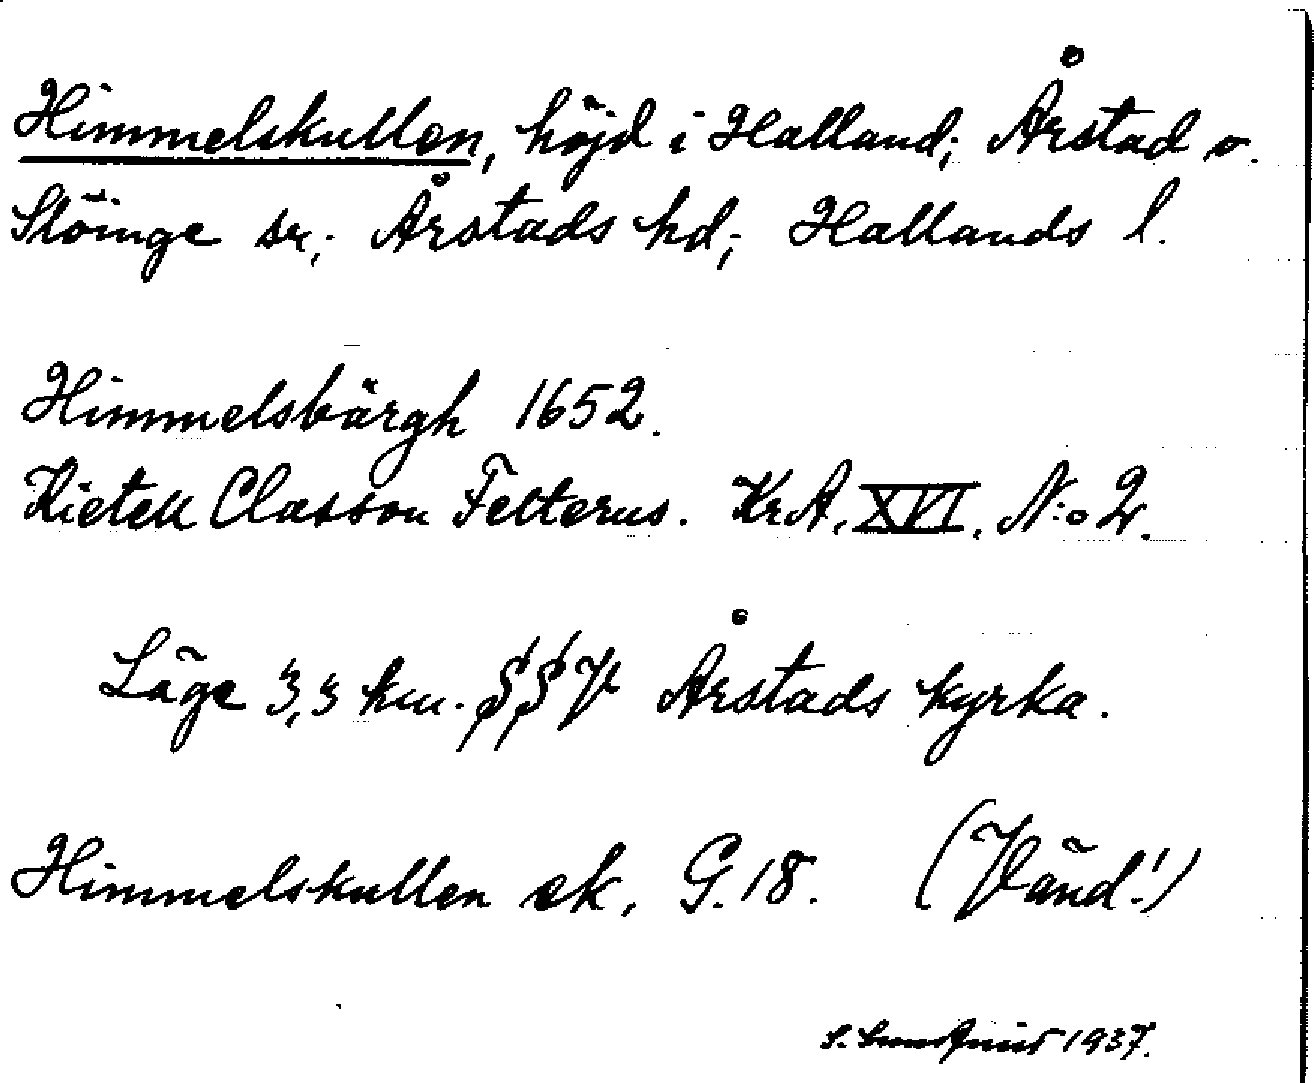 Himmelskullen, höjd i Halland; Årstad o.
Slöinge sn; Årstads hd; Hallands l.
Himmelsbärgh 1652.
Kietell Classon Felterus. Kr.A. XVI. N:o 2.
Läge 3,3 km. SSV Årstads kyrka.
Himmelskullen ek. G. 18. (Vänd!)
S. 1937.